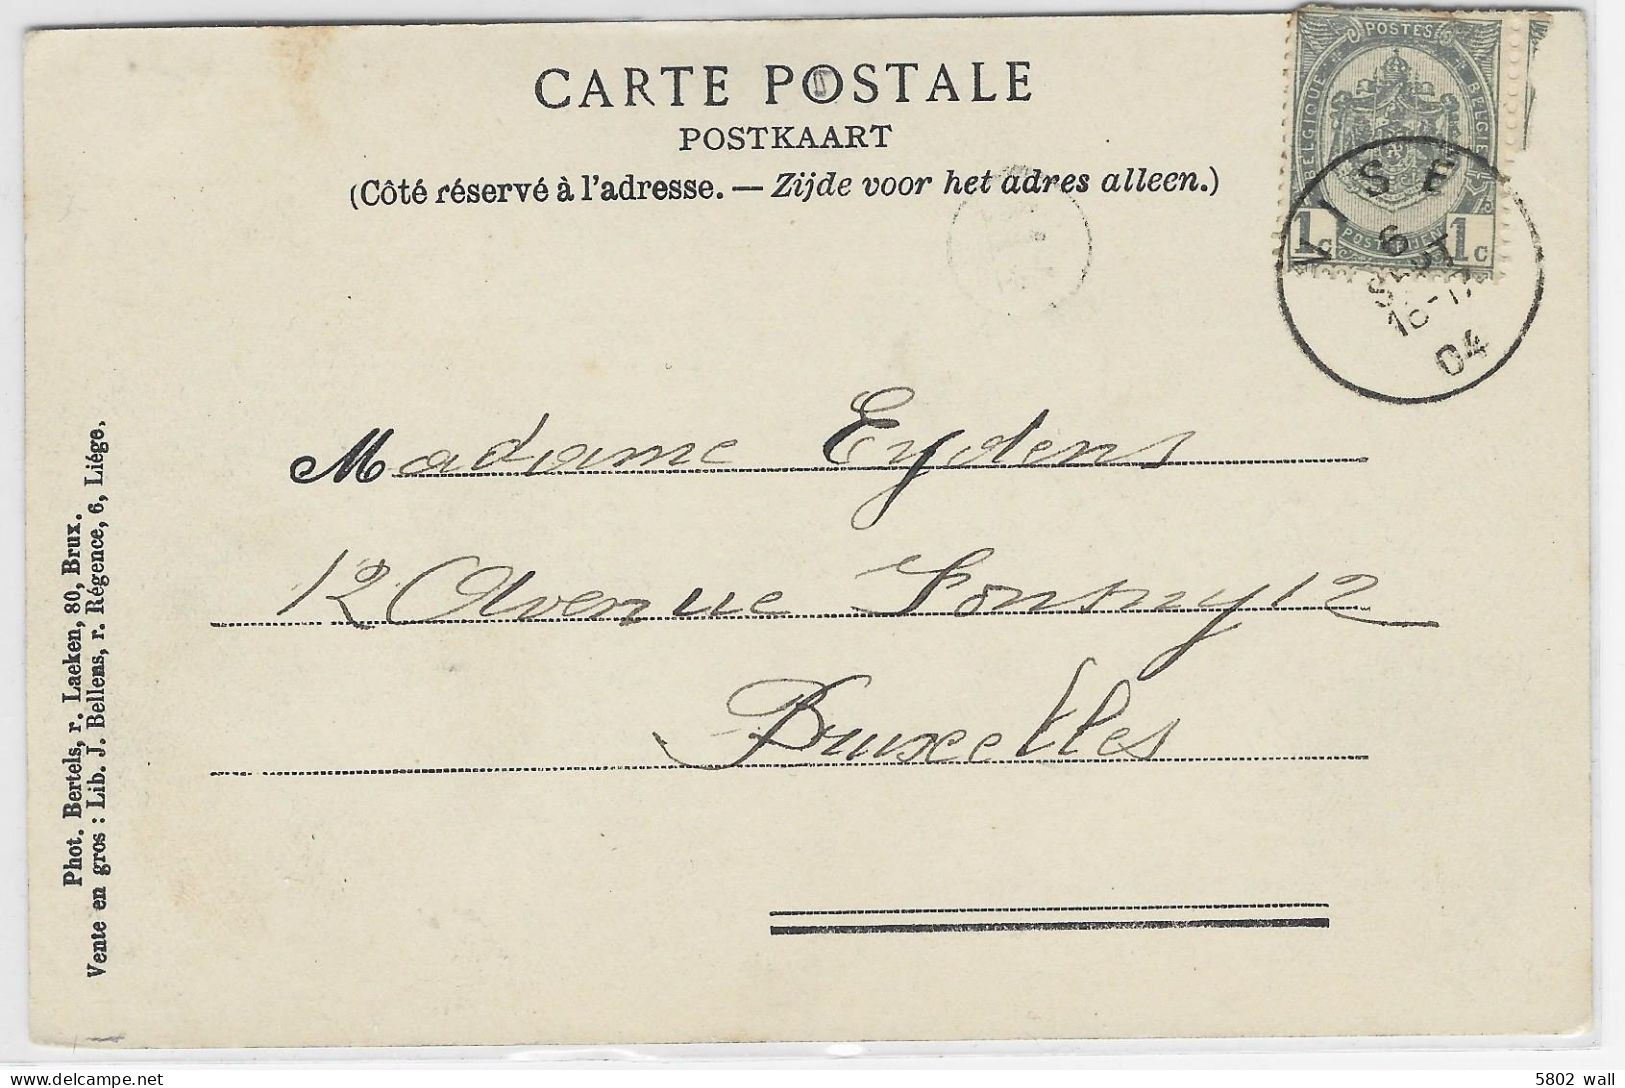 CARTE POSTALE
POSTKAART
(Côté réservé à l'adresse. — Zijde voor het adres alleen.)
POSTES
BELGIQUE BELGIE
1c 1c
VISE
6
SEPT
04
Madame Eydens
12 Avenue Fonsny 12
Bruxelles
Phot. Bertels, r. Laeken, 80, Brux.
Vente en gros : Lib. J. Bellens, r. Régence, 6, Liége.
5802 wall